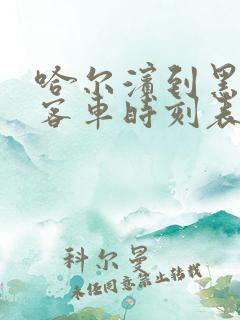 哈尔滨到黑
客车时刻表
科尔曼
未经同意禁止转载